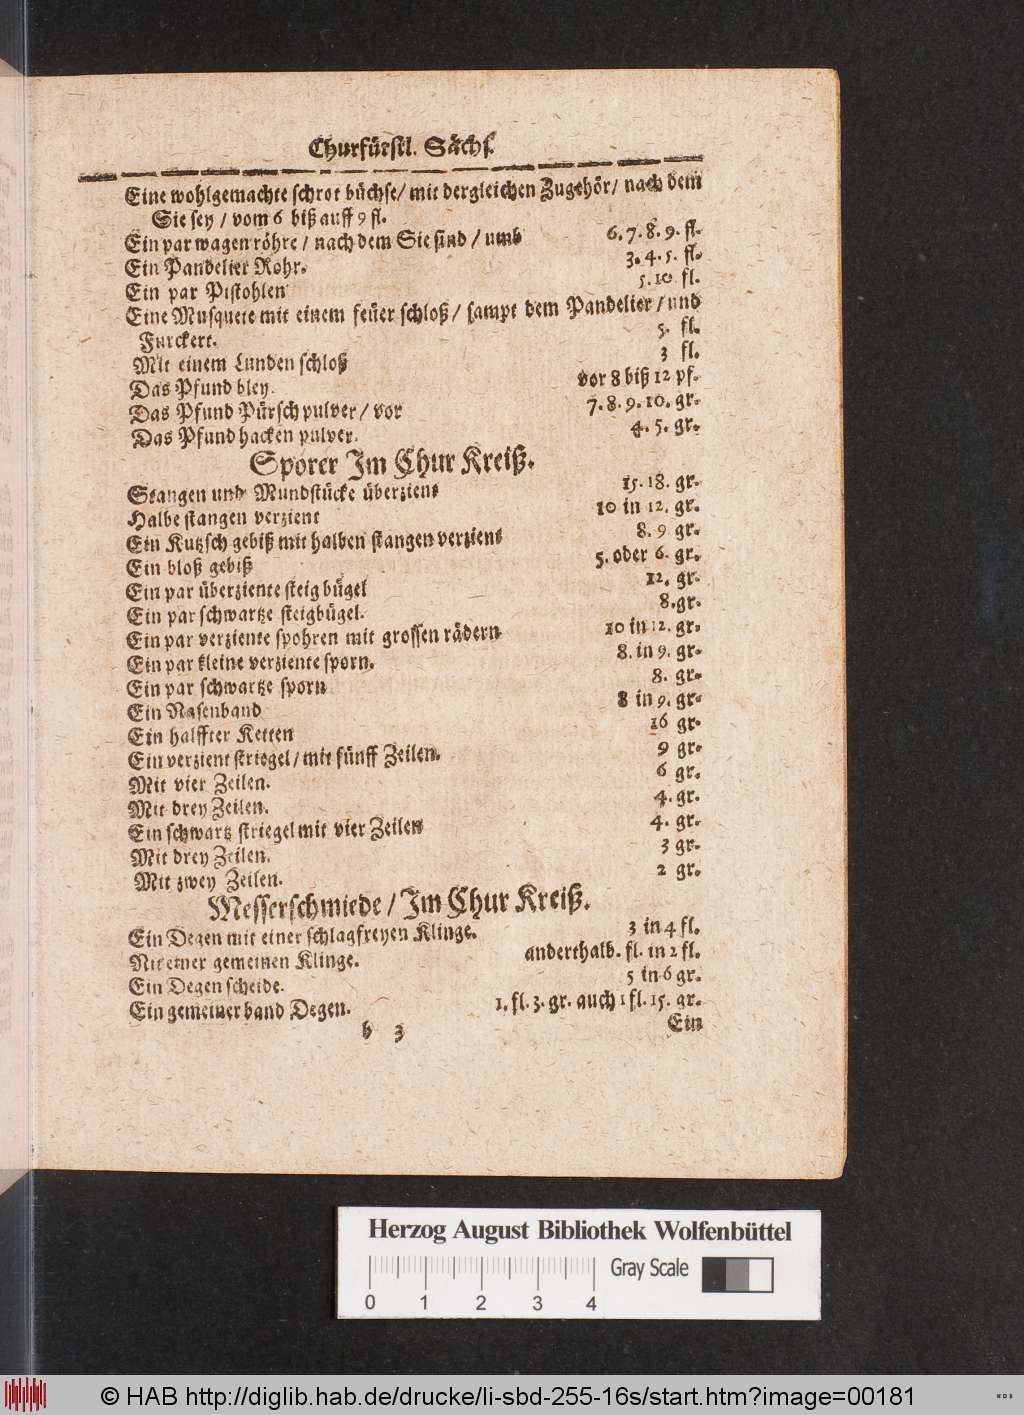 Churfürstl. Sächs.
Eine wohlgemachte schrot büchse/ mit dergleichen Zugehör/ nach dem
Sie sey / vom 6 biß auff 9 fl.
Ein par wagen röhre / nach dem Sie sind / umb 6. 7. 8. 9. fl.
Ein Pandelier Rohr. 3. 4. 5. fl.
Ein par Pistohlen 5. 10. fl.
Eine Musquete mit einem feüer schloß / sampt dem Pandelier / und
Furckert. 5. fl.
Mit einem Lunden schloß 3 fl.
Das Pfund bley. vor 8 biß 12 pf.
Das Pfund Pürsch pulver / vor 7. 8. 9. 10. gr.
Das Pfund hacken pulver. 4. 5. gr.
Sporer Im Chur Kreiß.
Stangen und Mundstücke überzient 15. 18. gr.
Halbe stangen verzient 10 in 12. gr.
Ein Kutzsch gebiß mit halben stangen verzient 8. 9 gr.
Ein bloß gebiß 5. oder 6. gr.
Ein par überziente steig bügel 12. gr.
Ein par schwartze steigbügel. 8. gr.
Ein par verziente spohren mit grossen rädern 10 in 12. gr.
Ein par kleine verziente sporn. 8. in 9. gr.
Ein par schwartze sporn 8. gr.
Ein Nasenband 8 in 9. gr.
Ein halffter Ketten 16 gr.
Ein verzient striegel / mit fünff Zeilen. 9 gr.
Mit vier Zeilen. 6 gr.
Mit drey Zeilen. 4. gr.
Ein schwartz striegel mit vier Zeilen 4. gr.
Mit drey Zeilen. 3 gr.
Mit zwey Zeilen. 2 gr.
Messerschmiede / Im Chur Kreiß.
Ein Degen mit einer schlagfreyen Klinge. 3 in 4 fl.
Mit einer gemeinen Klinge. anderthalb. fl. in 2 fl.
Ein Degen scheide. 5 in 6 gr.
Ein gemeiner band Degen. 1. fl. 3. gr. auch 1 fl. 15. gr.
b 3 Ein
Herzog August Bibliothek Wolfenbüttel
Gray Scale
0 1 2 3 4
© HAB http://diglib.hab.de/drucke/li-sbd-255-16s/start.htm?image=00181
WDB